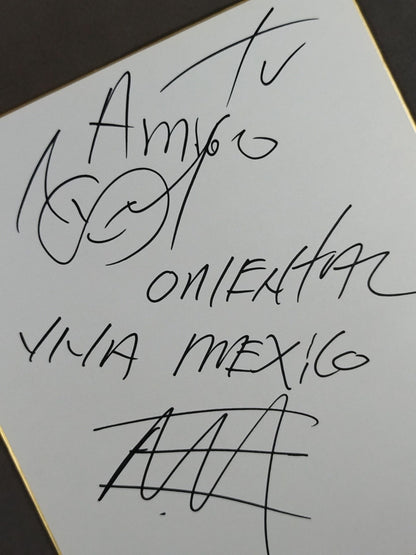 TU
AMIGO
ORIENTAL
VIVA MEXICO